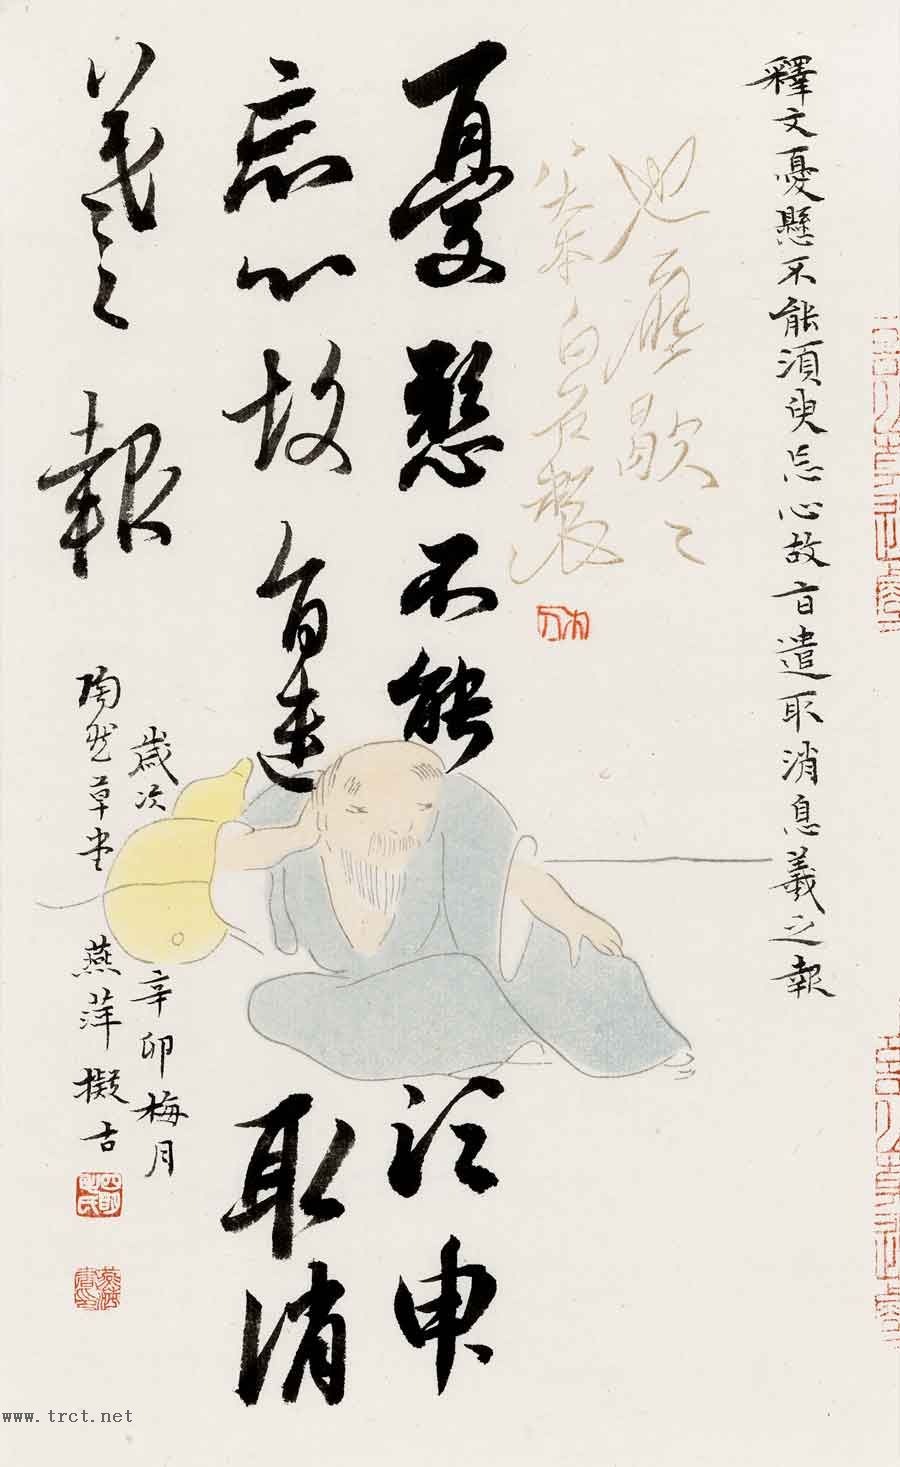 釋文憂懸不能須臾忘心故旨遣取消息羲之報
也應歇歇
白石製
木人
憂懸不能須臾
忘心故旨遣取消
羲之報
歲次辛卯梅月
陶然草堂燕萍擬古
www.trct.net